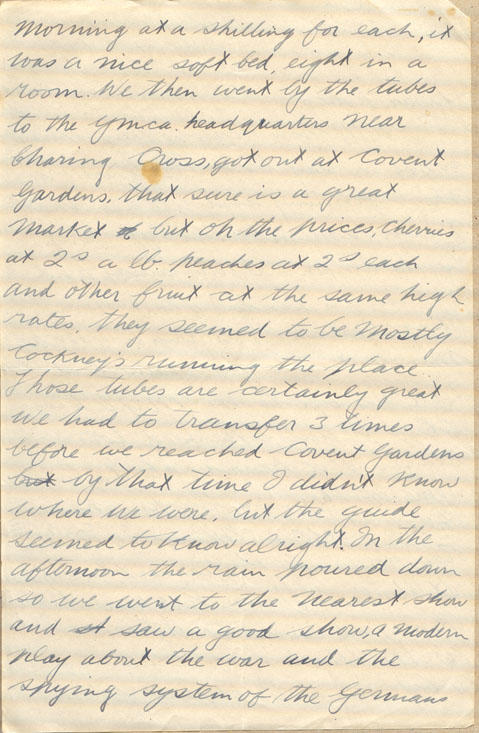 morning at a shilling for each, it
was a nice soft bed, eight in a
room. We then went by the tubes
to the Ymca. headquarters near
Charing Cross, got out at Covent
Gardens, that sure is a great
market but oh the prices, Cherries
at 2s a lb. peaches at 2s each
and other fruit at the same high
rates. they seemed to be mostly
Cockney's running the place.
Those tubes are certainly great
we had to transfer 3 times
before we reached Covent Gardens
but by that time I didn't know
where we were, but the guide
seemed to know alright. In the
afternoon the rain poured down
so we went to the nearest show
and saw a good show, a modern
play about the war and the
spying system of the Germans